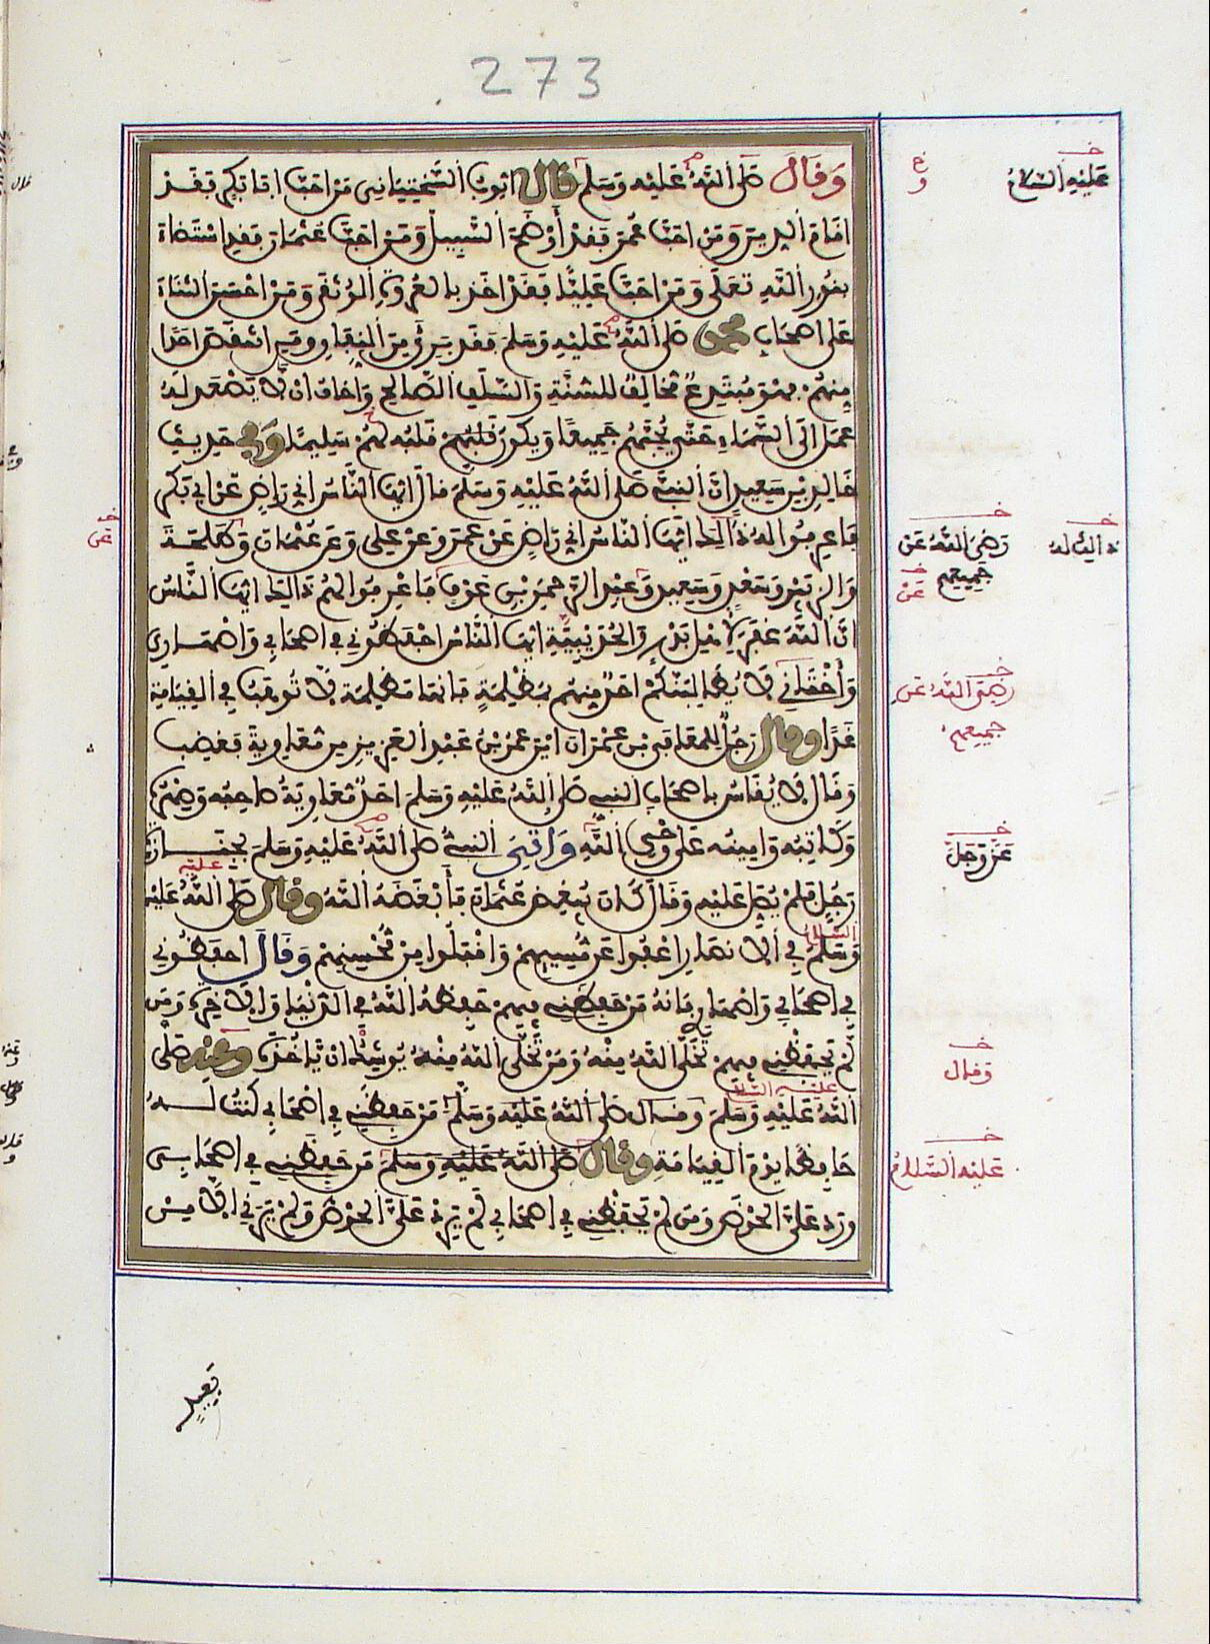 273
وَقَالَ صَلَّى اللَّهُ عَلَيْهِ وَسَلَّمَ قَالَ أَيُّوبُ السَّخْتِيَانِي مَنْ أَحَبَّ أَبَا بَكْرٍ فَقَدْ
أَقَامَ الدِّينَ وَمَنْ أَحَبَّ عُمَرَ فَقَدْ أَوْضَحَ السَّبِيلَ وَمَنْ أَحَبَّ عُثْمَانَ فَقَدِ اسْتَضَاءَ
بِنُورِ اللَّهِ تَعَلَى وَمَنْ أَحَبَّ عَلِيًّا فَقَدْ أَخَذَ بِالْعُرْوَةِ الْوُثْقَى وَمَنْ أَحْسَنَ الثَّنَاءَ
عَلَى أَصْحَابِ مُحَمَّدٍ صَلَّى اللَّهُ عَلَيْهِ وَسَلَّمَ فَقَدْ بَرِئَ مِنَ النِّفَاقِ وَمَنِ انْتَقَصَ أَحَدًا
مِنْهُمْ فَهُوَ مُبْتَدِعٌ مُخَالِفٌ لِلسُّنَّةِ وَالسَّلَفِ الصَّالِحِ وَأَخَافُ أَنْ لَا يَصْعَدَ لَهُ
عَمَلٌ إِلَى السَّمَاءِ حَتَّى يُحِبَّهُمْ جَمِيعًا وَيَكُونَ قَلْبُهُ لَهُمْ سَلِيمًا وَفِي حَدِيثِ
خَالِدِ بْنِ سَعِيدٍ أَنَّ النَّبِيَّ صَلَّى اللَّهُ عَلَيْهِ وَسَلَّمَ قَالَ أَيُّهَا النَّاسُ إِنِّي رَاضٍ عَنْ أَبِي بَكْرٍ
فَاعْرِفُوا لَهُ ذَلِكَ أَيُّهَا النَّاسُ إِنِّي رَاضٍ عَنْ عُمَرَ وَعَنْ عَلِيٍّ وَعَنْ عُثْمَانَ وَطَلْحَةَ
وَالزُّبَيْرِ وَسَعْدٍ وَسَعِيدٍ وَعَبْدِ الرَّحْمَنِ بْنِ عَوْفٍ فَاعْرِفُوا لَهُمْ ذَلِكَ أَيُّهَا النَّاسُ
إِنَّ اللَّهَ غَفَرَ لِأَهْلِ بَدْرٍ وَالْحُدَيْبِيَّةِ أَيُّهَا النَّاسُ احْفَظُونِي فِي أَصْحَابِي وَأَصْهَارِي
وَأَخْتَانِي لَا يُطَالِبَنَّكُمْ أَحَدٌ مِنْهُمْ بِمَظْلِمَةٍ فَإِنَّهَا مَظْلِمَةٌ لَا تُوهَبُ فِي الْقِيَامَةِ
غَدًا وَقَالَ رَجُلٌ لِلْمُعَافَى بْنِ عِمْرَانَ أَيْنَ عُمَرُ بْنُ عَبْدِ الْعَزِيزِ مِنْ مُعَاوِيَةَ فَغَضِبَ
وَقَالَ لَا يُقَاسُ بِأَصْحَابِ النَّبِيِّ صَلَّى اللَّهُ عَلَيْهِ وَسَلَّمَ أَحَدٌ مُعَاوِيَةُ صَاحِبُهُ وَصِهْرُهُ
وَكَاتِبُهُ وَأَمِينُهُ عَلَى وَحْيِ اللَّهِ وَأُتِيَ النَّبِيُّ صَلَّى اللَّهُ عَلَيْهِ وَسَلَّمَ بِجَنَازَةِ
رَجُلٍ فَلَمْ يُصَلِّ عَلَيْهِ وَقَالَ كَانَ يُبْغِضُ عُثْمَانَ فَأَبْغَضَهُ اللَّهُ وَقَالَ صَلَّى اللَّهُ عَلَيْهِ
وَسَلَّمَ فِي الْأَنْصَارِ اعْفُوا عَنْ مُسِيئِهِمْ وَاقْبَلُوا مِنْ مُحْسِنِهِمْ وَقَالَ احْفَظُونِي
فِي أَصْحَابِي وَأَصْهَارِي فَإِنَّهُ مَنْ حَفِظَنِي فِيهِمْ حَفِظَهُ اللَّهُ فِي الدُّنْيَا وَالْآخِرَةِ وَمَنْ
لَمْ يَحْفَظْنِي فِيهِمْ تَخَلَّى اللَّهُ مِنْهُ وَمَنْ تَخَلَّى اللَّهُ مِنْهُ يُوشِكُ أَنْ يَأْخُذَهُ وَعَنْهُ صَلَّى
اللَّهُ عَلَيْهِ وَسَلَّمَ وَقَالَ صَلَّى اللَّهُ عَلَيْهِ وَسَلَّمَ مَنْ حَفِظَنِي فِي أَصْحَابِي كُنْتُ لَهُ
حَافِظًا يَوْمَ الْقِيَامَةِ وَقَالَ صَلَّى اللَّهُ عَلَيْهِ وَسَلَّمَ مَنْ حَفِظَنِي فِي أَصْحَابِي
وَرَدَ عَلَيَّ الْحَوْضَ وَمَنْ لَمْ يَحْفَظْنِي فِي أَصْحَابِي لَمْ يَرِدْ عَلَيَّ الْحَوْضَ وَلَمْ يَرَنِي إِلَّا مِنْ
بَعِيدٍ
عَلَيْهِ السَّلَامُ
رَضِيَ اللَّهُ عَنْ
جَمِيعِهِمْ
عَنْ
رَضِيَ اللَّهُ عَنْ
جَمِيعِهِمْ
عَزَّ وَجَلَّ
وَقَالَ
عَلَيْهِ السَّلَامُ